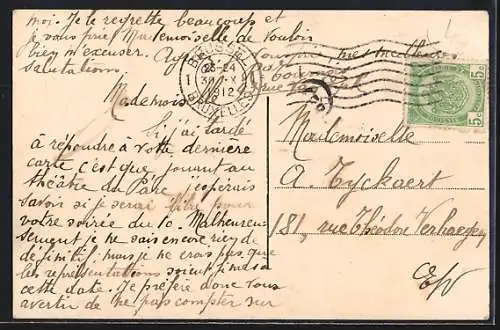 moi. Je le regrette beaucoup et
je vous prie, Mademoiselle de vouloir
bien m'excuser.
mes meilleures
salutations.
BRUXELLES
23-24
1912
BRUXELLES
Mademoiselle
Si j'ai tardé
à répondre à votre dernière
carte c'est que, jouant au
théâtre du Parc, j'espérais
savoir si je serai libre pour
votre soirée du 10. Malheureu-
sement je ne sais encore rien de
définitif, mais je ne crois pas que
les représentations soient
cette date. Je préfère donc vous
avertir de ne pas compter sur
5c
5c
Mademoiselle
A. Tyckaert
181, rue Théodore Verhaegen
E/V